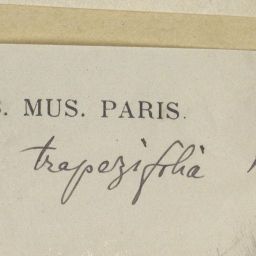 . MUS. PARIS.
trapezifolia